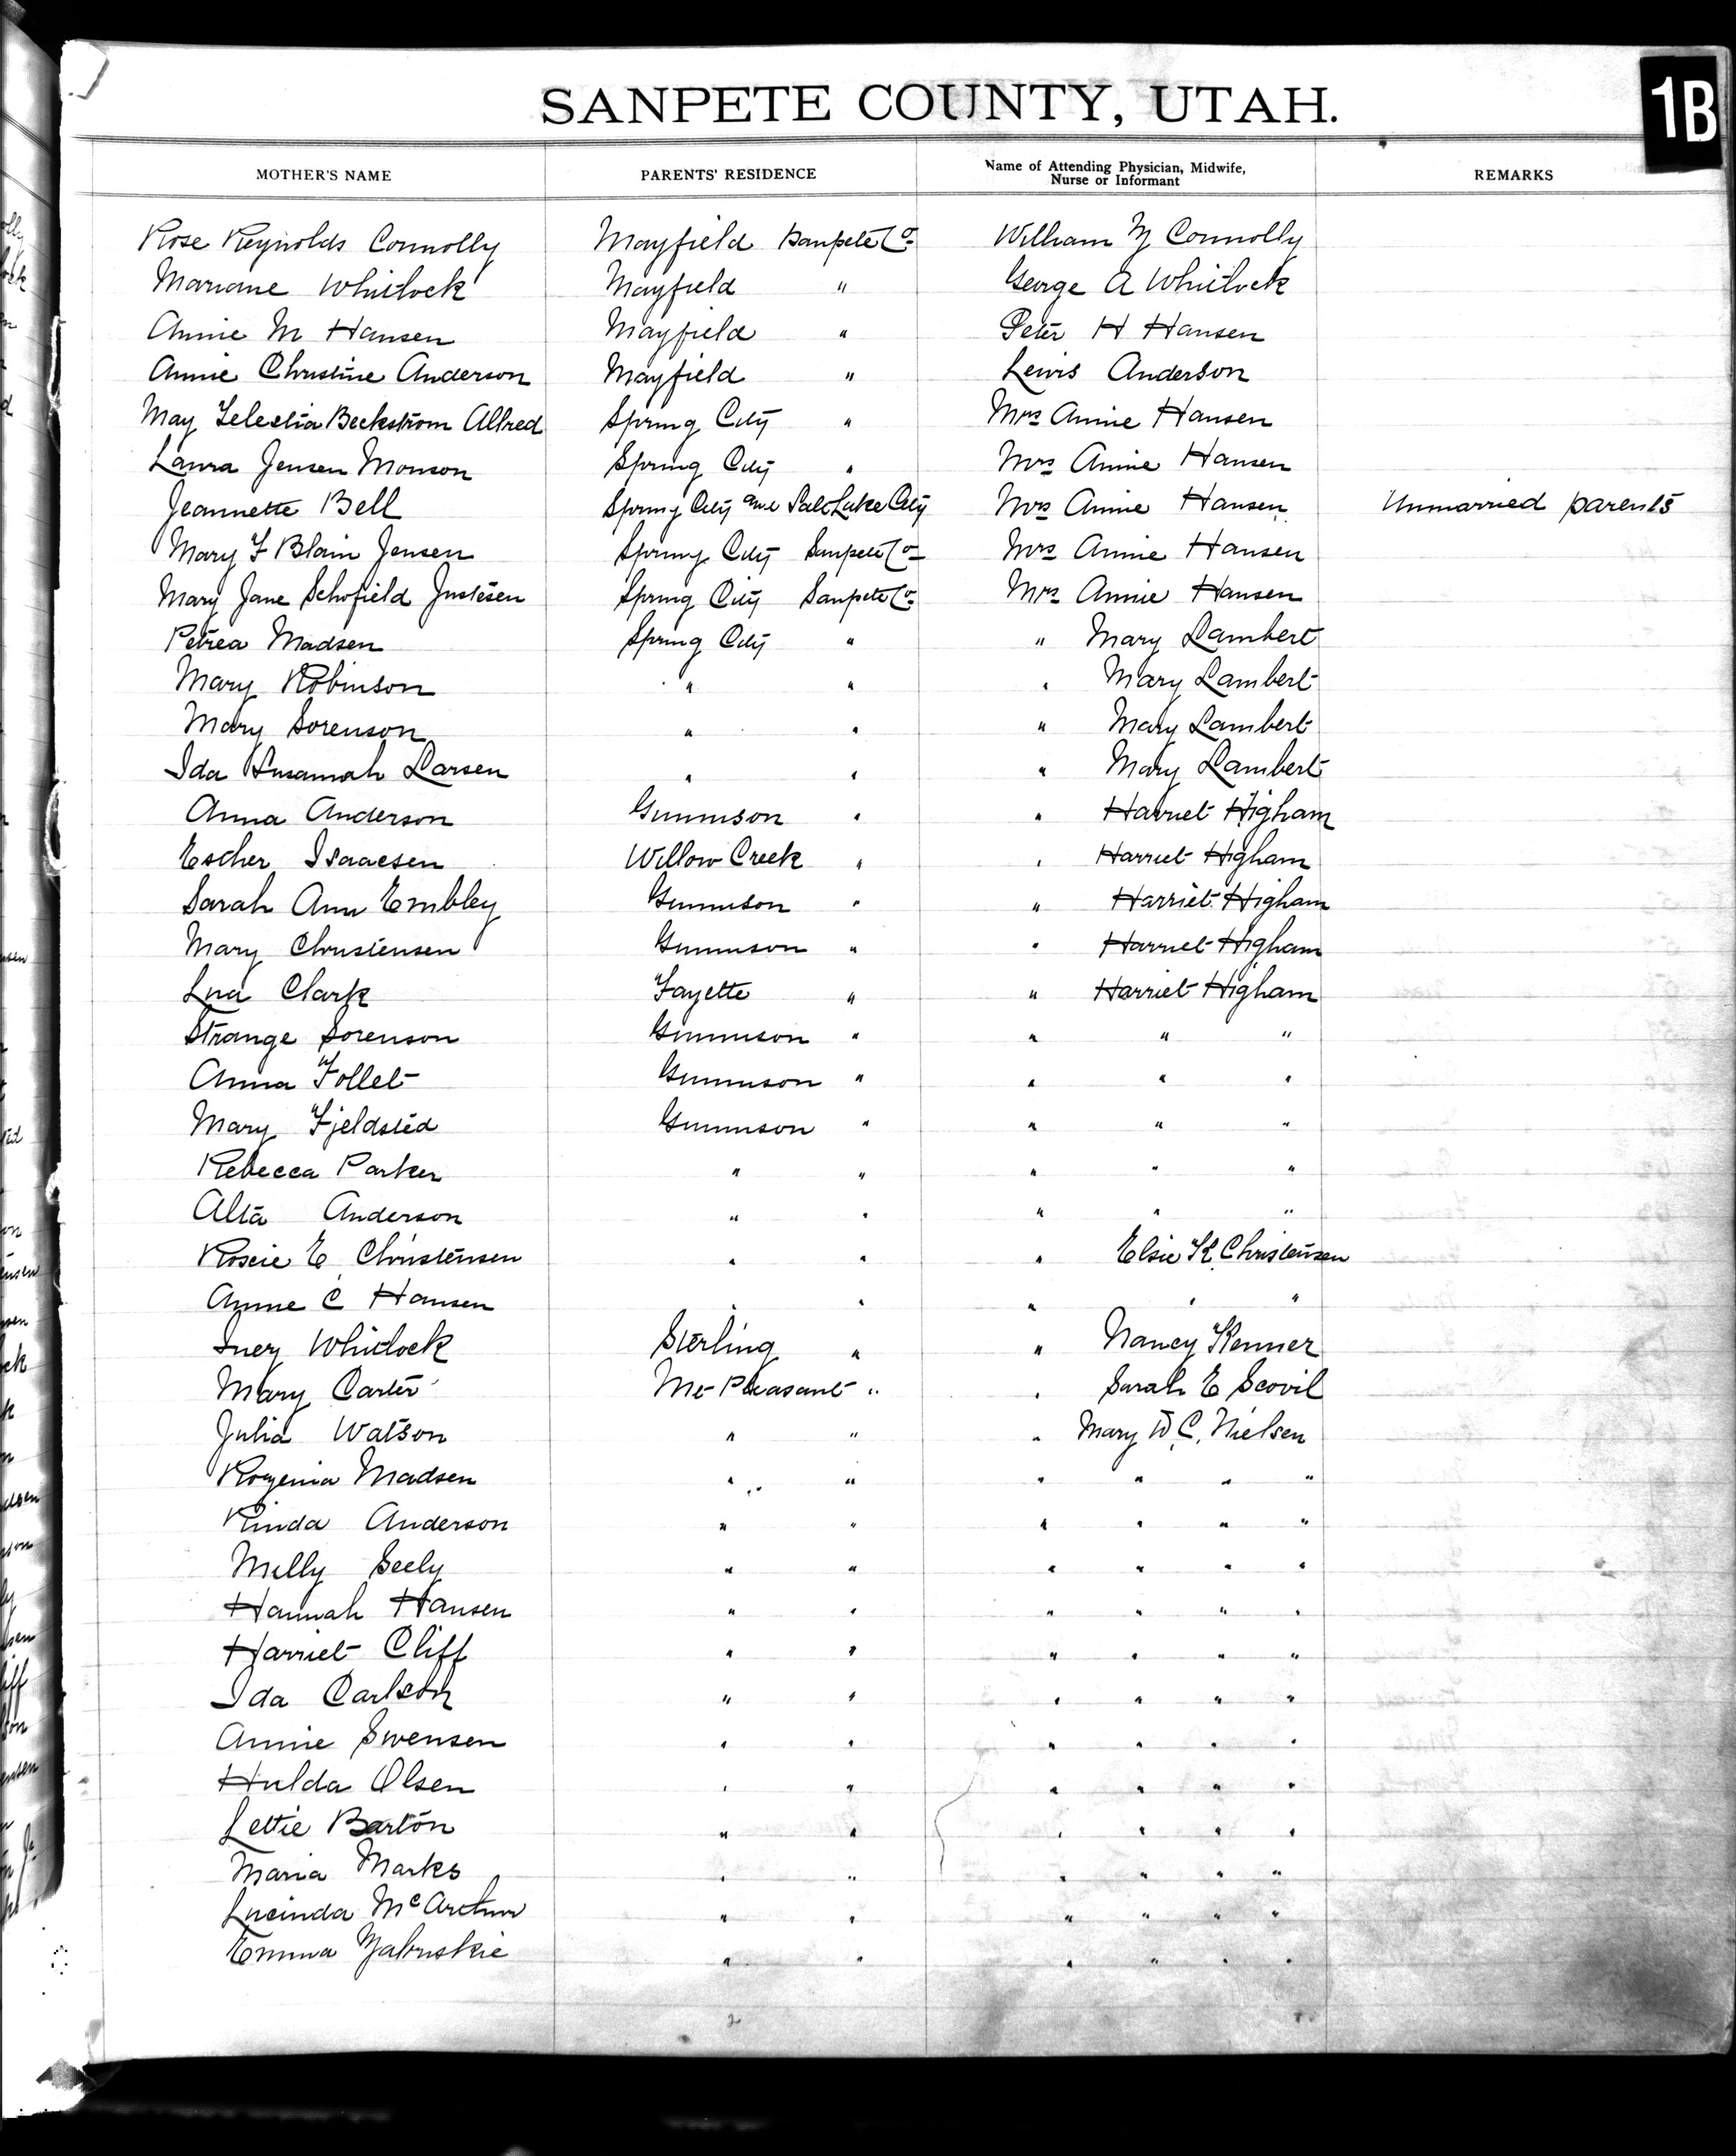 SANPETE COUNTY, UTAH.
1B
MOTHER'S NAME PARENTS' RESIDENCE Name of Attending Physician, Midwife, Nurse or Informant REMARKS
Rose Reynolds Connolly Mayfield Sanpete Co William Connolly
Mariane Whitlock Mayfield " George A Whitlock
Annie M Hansen Mayfield " Peter H Hansen
Annie Christine Anderson Mayfield " Lewis Anderson
May Zelestia Beckstrom Allred Spring City " Mrs Annie Hansen
Laura Jensen Monson Spring City " Mrs Annie Hansen
Jeannette Bell Spring City and Salt Lake City Mrs Annie Hansen Unmarried parents
Mary F Blain Jensen Spring City Sanpete Co Mrs Annie Hansen
Mary Jane Schofield Justesen Spring City Sanpete Co Mrs Annie Hansen
Petrea Madsen Spring City " " Mary Lambert
Mary Robinson " " " Mary Lambert
Mary Sorenson " " " Mary Lambert
Ida Susannah Larsen " " " Mary Lambert
Anna Anderson Gunnison " " Harriet Higham
Esther Isaacsen Willow Creek " " Harriet Higham
Sarah Ann Embley Gunnison " " Harriet Higham
Mary Christensen Gunnison " " Harriet Higham
Lna Clark Fayette " " Harriet Higham
Strange Sorenson Gunnison " " " "
Anna Follet Gunnison " " " "
Mary Fjeldsted Gunnison " " " "
Rebecca Parker " " " " "
Alta Anderson " " " " "
Roseie E Christensen " " " Elsie K Christensen
Annie C Hansen " " " " "
Inez Whitlock Sterling " " Nancy Kenner
Mary Carter Mt Pleasant " " Sarah E Scovil
Julia Watson " " " Mary D C. Nielsen
Rozenia Madsen " " " " " "
Rinda Anderson " " " " " "
Milly Seely " " " " " "
Hannah Hansen " " " " " "
Harriet Cliff " " " " " "
Ida Carlson " " " " " "
Annie Swensen " " " " " "
Hulda Olsen " " " " " "
Lettie Barton " " " " " "
Maria Marks " " " " " "
Lucinda McArthur " " " " " "
Emma Zabriskie " " " " " "